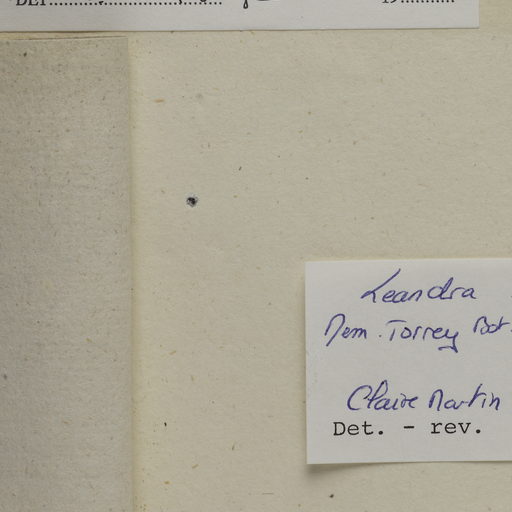 DET.
19
Leandra
Mem. Torrey Bot.
Claire Martin
Det. - rev.